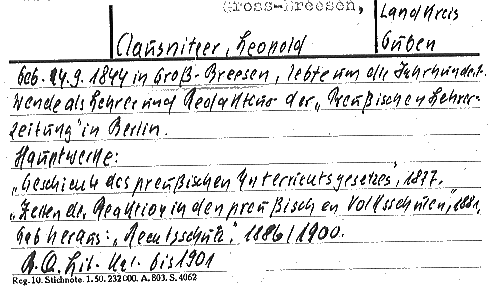 Gross-Breesen,
Landkreis
Clausnitzer, Leopold
Guben
Geb. 24.9.1844 in Groß-Breesen, lebte um die Jahrhundert-
Wende als Lehrer und Redakteur der „Preußischen Lehrer-
zeitung" in Berlin.
Hauptwerke:
„Geschichte des preußischen Unterrichtsgesetzes", 1877.
„Zeiten der Reaktion in den preußischen Volksschulen", 1881,
Gab heraus: „Rechtsschutz", 1886/1900.
Lit. Kal. bis 1901
Reg. 10. Stichnote. 1. 50. 232000. A. 803. S. 4062